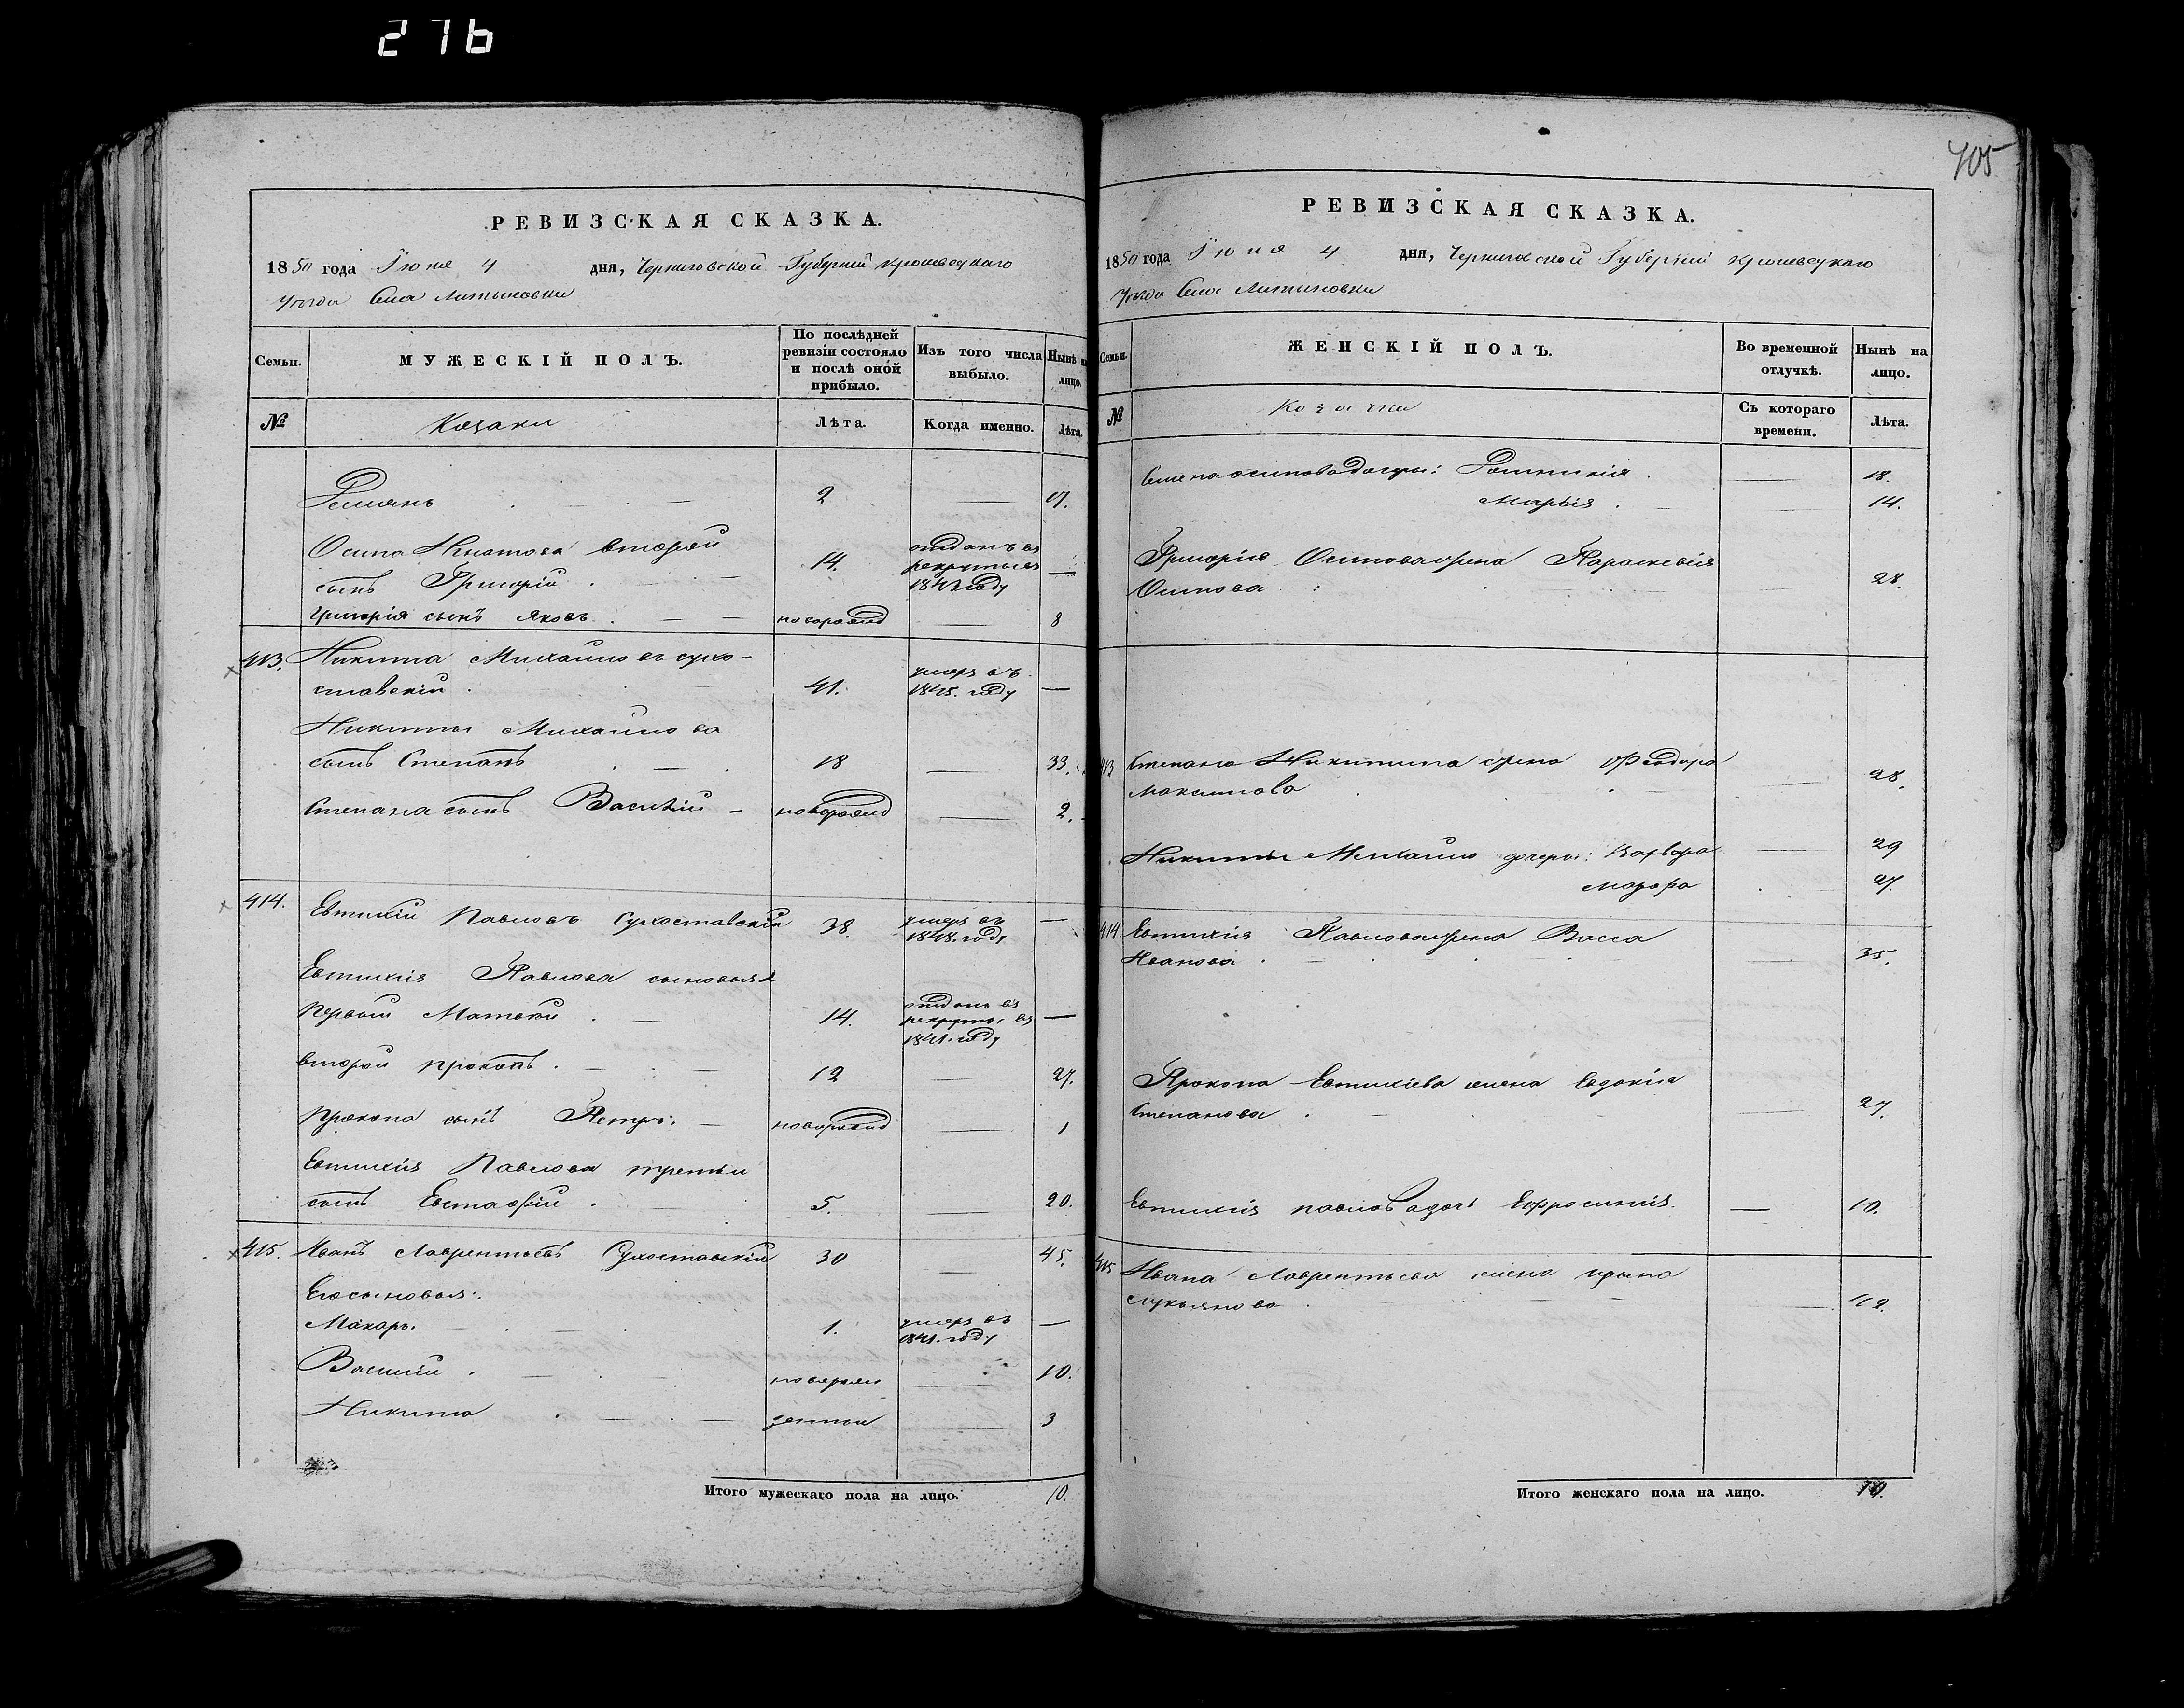 276
РЕВИЗСКАЯ СКАЗКА.
1850 года Іюня 4 дня, Черниговской Губерніи Кролевецкаго
уѣзда Села Литвиновки
Семьи.
МУЖЕСКІЙ ПОЛЪ.
По послѣдней ревизіи состояло и послѣ оной прибыло.
Изъ того числа выбыло.
Нынѣ на лицо.
№
Козаки
Лѣта.
Когда именно.
Лѣта.
Демянъ 2 — 17.
Осипа Игнатова второй
сынъ Григорій 14. отданъ въ рекруты въ 1843 году —
Григорія сынъ Яковъ новорожд — 8
413. Никита Михайловъ Сухо-
ставскій 41. умеръ въ 1845. году —
Никиты Михайлова
сынъ Степанъ 18 — 33.
Степана сынъ Василій новорожд — 2.
414. Евтихій Павловъ Сухоставскій 38. умеръ въ 1848. году —
Евтихія Павлова сыновья
первый Матвѣй 14. отданъ въ рекруты въ 1841. году —
второй Прокопъ 12 — 27.
Прокопа сынъ Петръ. новорожд — 1
Евтихія Павлова третьи
сынъ Евстафій 5. — 20.
415. Иванъ Лаврентьевъ Сухоставскій 30 — 45.
Его сыновья:
Макаръ. 1. умеръ въ 1841. году —
Василій новорож — 10.
Никита денныи — 3
Итого мужескаго пола на лицо. 10.
405
РЕВИЗСКАЯ СКАЗКА.
1850 года Іюня 4 дня, Черниговской Губерніи Кролевецкаго
уѣзда Села Литвиновки
Семьи.
ЖЕНСКІЙ ПОЛЪ.
Во временной отлучкѣ.
Нынѣ на лицо.
№
Козачки
Съ котораго времени.
Лѣта.
Осипова дочери: — 18.
Марья — 14.
Григорія Осипова жена Параскевія
Осипова 28.
413 Степана Никитина жена Феодора
Максимова 28.
Никиты Михайло дочери: Варвара — 29
27.
414. Евтихія Павлова жена Васса
Иванова — 35.
Прокопа Евтихіева жена Евдокія
Степанова — 27.
Евтихія Павлова дочь Ефросинія. — 10.
415 Ивана Лаврентьева жена Ирина
Лукьянова — 42.
Итого женскаго пола на лицо. 10.